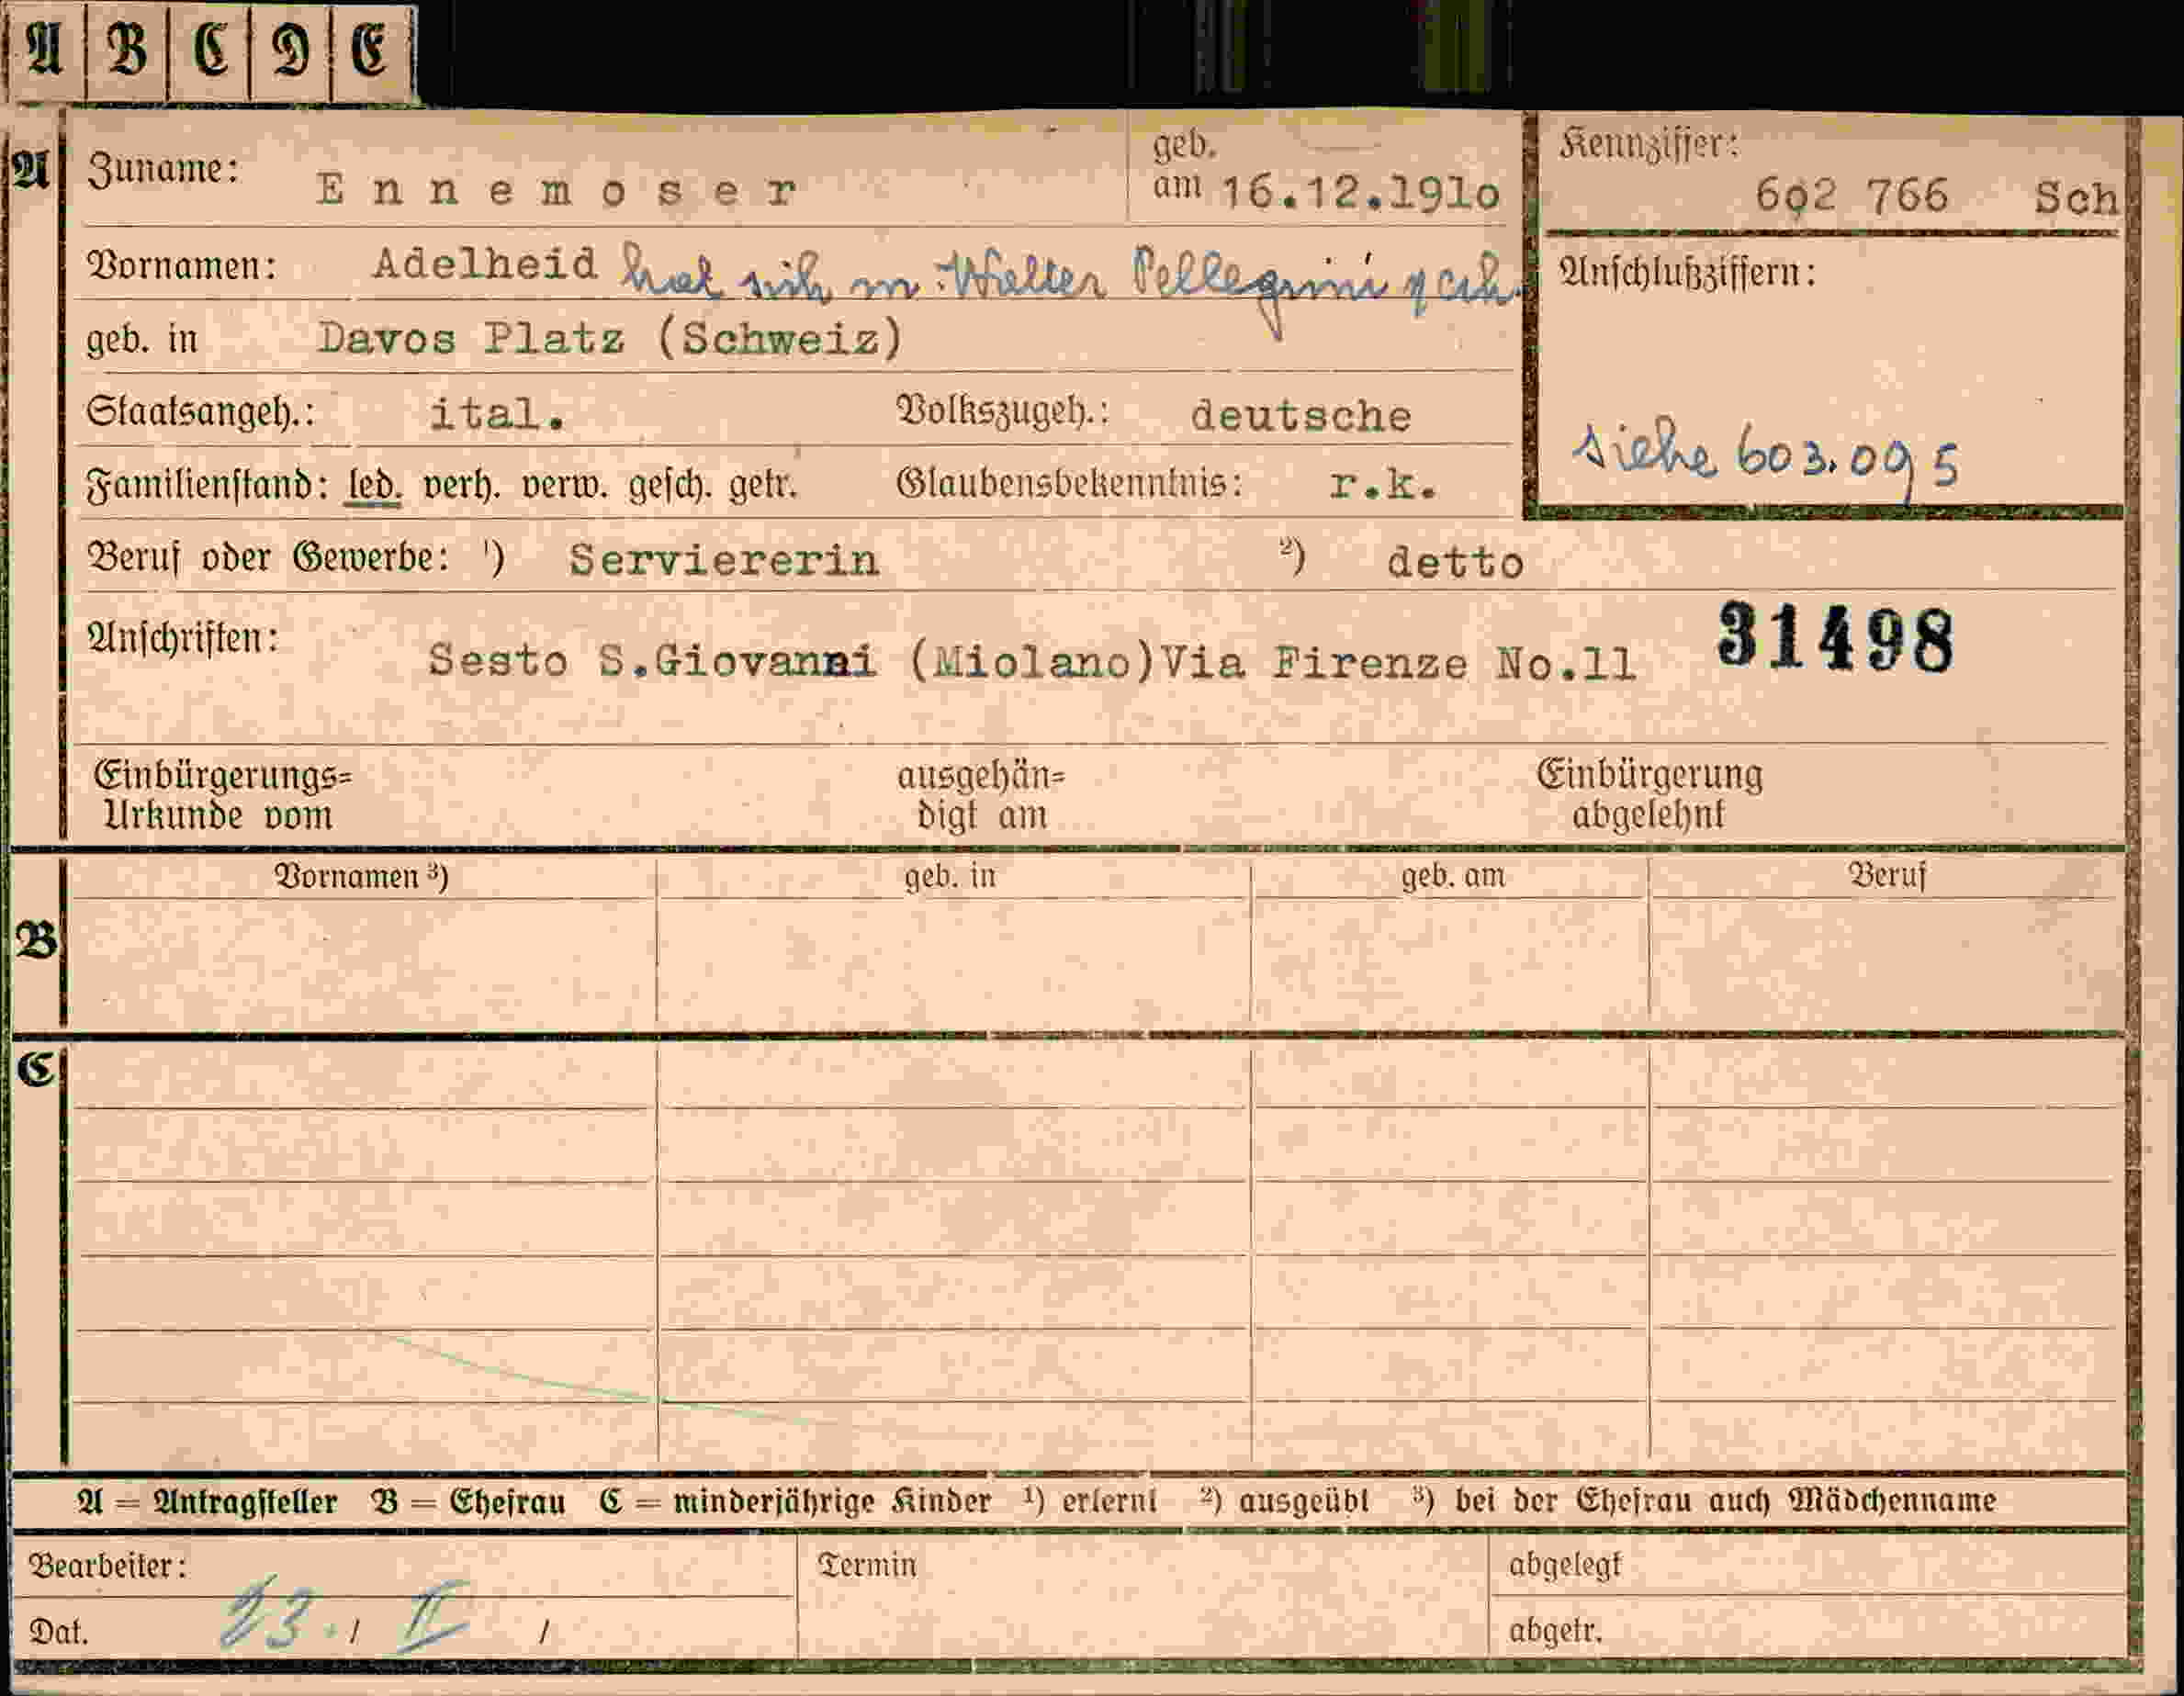 A B C D E
A Zuname: Ennemoser geb. am 16.12.191o Kennziffer: 602 766 Sch
Vornamen: Adelheid hat sich m. Walter Pellegrini Anschlußziffern:
geb. in Davos Platz (Schweiz)
Staatsangeh.: ital. Volkszugeh.: deutsche
siehe 603.095
Familienstand: led. verh. verw. gesch. getr. Glaubensbekenntnis: r.k.
Beruf oder Gewerbe: ¹) Serviererin ²) detto
Anschriften: Sesto S.Giovanni (Miolano)Via Firenze No.11 31498
Einbürgerungs= ausgehän= Einbürgerung
Urkunde vom digt am abgelehnt
Vornamen ³) geb. in geb. am Beruf
B
C
A = Antragsteller B = Ehefrau C = minderjährige Kinder ¹) erlernt ²) ausgeübt ³) bei der Ehefrau auch Mädchenname
Bearbeiter: Termin abgelegt
Dat. 23. / II / abgetr.